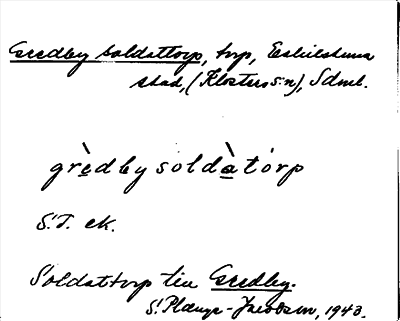 Gredby soldattorp, torp, Eskilstuna
stad, (Klosters s:n), Sdml.
grèdby soldàtórp
S.T. ek.
Soldattorp till Gredby.
S. Plænge-Jacobson, 1943.